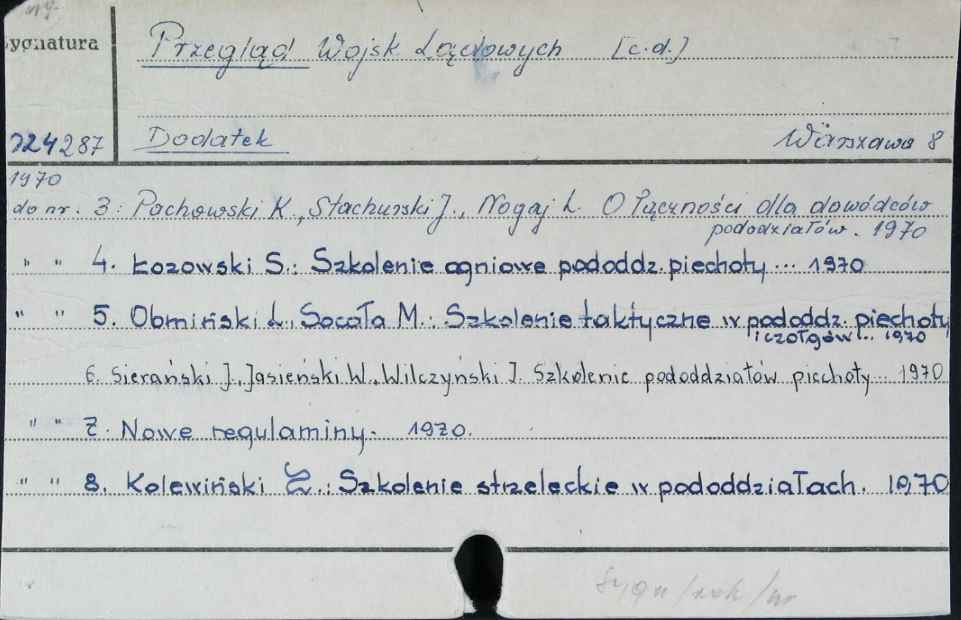 Sygnatura
Przegląd Wojsk Lądowych [c.d.]
224287 Dodatek Warszawa 8
1970
do nr. 3: Pachowski K., Stachurski J., Nogaj L. O łączności dla dowódców
pododziałów. 1970
" " 4. Łozowski S.: Szkolenie ogniowe pododdz. piechoty... 1970
" " 5. Obmiński L., Socała M.: Szkolenie taktyczne w pododdz. piechoty
i czołgów... 1970
6. Sierański J., Jasieński W., Wilczyński J. Szkolenie pododdziałów piechoty... 1970
" " 7. Nowe regulaminy. 1970.
" " 8. Kolewiński Z.: Szkolenie strzeleckie w pododdziałach. 1970
Sygn/rok/nr